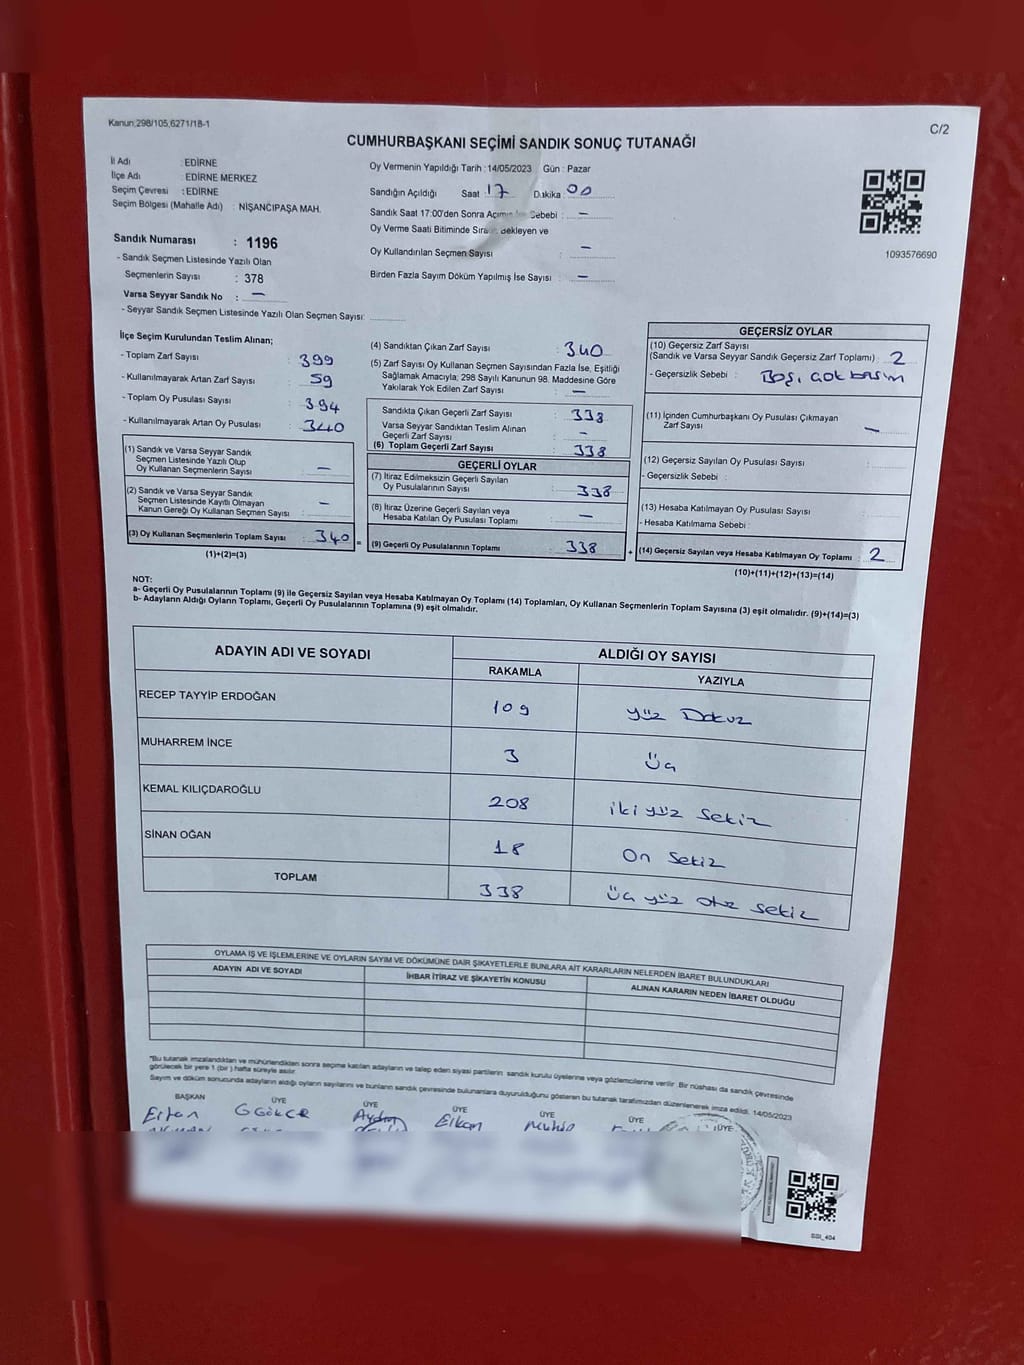 Kanun,298/105,6271/18-1
C/2
CUMHURBAŞKANI SEÇİMİ SANDIK SONUÇ TUTANAĞI
İl Adı : EDİRNE
İlçe Adı : EDİRNE MERKEZ
Seçim Çevresi : EDİRNE
Seçim Bölgesi (Mahalle Adı) : NİŞANCIPAŞA MAH.
Sandık Numarası : 1196
- Sandık Seçmen Listesinde Yazılı Olan
Seçmenlerin Sayısı : 378
Varsa Seyyar Sandık No : —
- Seyyar Sandık Seçmen Listesinde Yazılı Olan Seçmen Sayısı:
Oy Vermenin Yapıldığı Tarih : 14/05/2023 Gün : Pazar
Sandığın Açıldığı Saat 17 Dakika : 00
Sandık Saat 17:00'den Sonra Sebebi : —
Oy Verme Saati Bitiminde Bekleyen ve
Oy Kullandırılan Seçmen Sayısı : —
Birden Fazla Sayım Döküm Yapılmış İse Sayısı : —
1093576690
İlçe Seçim Kurulundan Teslim Alınan;
- Toplam Zarf Sayısı : 399
- Kullanılmayarak Artan Zarf Sayısı : 59
- Toplam Oy Pusulası Sayısı : 394
- Kullanılmayarak Artan Oy Pusulası : 340
(1) Sandık ve Varsa Seyyar Sandık
Seçmen Listesinde Yazılı Olup
Oy Kullanan Seçmenlerin Sayısı : —
(2) Sandık ve Varsa Seyyar Sandık
Seçmen Listesinde Kayıtlı Olmayan
Kanun Gereği Oy Kullanan Seçmen Sayısı : —
(3) Oy Kullanan Seçmenlerin Toplam Sayısı : 340 =
(1)+(2)=(3)
(4) Sandıktan Çıkan Zarf Sayısı : 340
(5) Zarf Sayısı Oy Kullanan Seçmen Sayısından Fazla İse, Eşitliği
Sağlamak Amacıyla; 298 Sayılı Kanunun 98. Maddesine Göre
Yakılarak Yok Edilen Zarf Sayısı : —
Sandıkta Çıkan Geçerli Zarf Sayısı : 338
Varsa Seyyar Sandıktan Teslim Alınan
Geçerli Zarf Sayısı : —
(6) Toplam Geçerli Zarf Sayısı : 338
GEÇERLİ OYLAR
(7) İtiraz Edilmeksizin Geçerli Sayılan
Oy Pusulalarının Sayısı : 338
(8) İtiraz Üzerine Geçerli Sayılan veya
Hesaba Katılan Oy Pusulası Toplamı : —
(9) Geçerli Oy Pusulalarının Toplamı : 338 +
GEÇERSİZ OYLAR
(10) Geçersiz Zarf Sayısı
(Sandık ve Varsa Seyyar Sandık Geçersiz Zarf Toplamı) : 2
- Geçersizlik Sebebi : Boş, çok basım
(11) İçinden Cumhurbaşkanı Oy Pusulası Çıkmayan
Zarf Sayısı : —
(12) Geçersiz Sayılan Oy Pusulası Sayısı :
- Geçersizlik Sebebi :
(13) Hesaba Katılmayan Oy Pusulası Sayısı :
- Hesaba Katılmama Sebebi :
(14) Geçersiz Sayılan veya Hesaba Katılmayan Oy Toplamı : 2
(10)+(11)+(12)+(13)=(14)
NOT:
a- Geçerli Oy Pusulalarının Toplamı (9) ile Geçersiz Sayılan veya Hesaba Katılmayan Oy Toplamı (14) Toplamları, Oy Kullanan Seçmenlerin Toplam Sayısına (3) eşit olmalıdır. (9)+(14)=(3)
b- Adayların Aldığı Oyların Toplamı, Geçerli Oy Pusulalarının Toplamına (9) eşit olmalıdır.
ADAYIN ADI VE SOYADI
ALDIĞI OY SAYISI
RAKAMLA YAZIYLA
RECEP TAYYİP ERDOĞAN 109 Yüz Dokuz
MUHARREM İNCE 3 Üç
KEMAL KILIÇDAROĞLU 208 iki yüz Sekiz
SİNAN OĞAN 18 On Sekiz
TOPLAM 338 Üç yüz otuz sekiz
OYLAMA İŞ VE İŞLEMLERİNE VE OYLARIN SAYIM VE DÖKÜMÜNE DAİR ŞİKAYETLERLE BUNLARA AİT KARARLARIN NELERDEN İBARET BULUNDUKLARI
ADAYIN ADI VE SOYADI İHBAR İTİRAZ VE ŞİKAYETİN KONUSU ALINAN KARARIN NEDEN İBARET OLDUĞU
*Bu tutanak imzalandıktan ve mühürlendikten sonra seçime katılan adayların ve talep eden siyasi partilerin sandık kurulu üyelerine veya gözlemcilerine verilir. Bir nüshası da sandık çevresinde
görülecek bir yere 1 (bir) hafta süreyle asılır.
Sayım ve döküm sonucunda adayların aldığı oyların sayılarını ve bunların sandık çevresinde bulunanlara duyurulduğunu gösteren bu tutanak tarafımızdan düzenlenerek imza edildi. 14/05/2023
BAŞKAN ÜYE ÜYE ÜYE ÜYE ÜYE ÜYE
Ertan G GÖKÇE Aydın Erkan
SSI_404